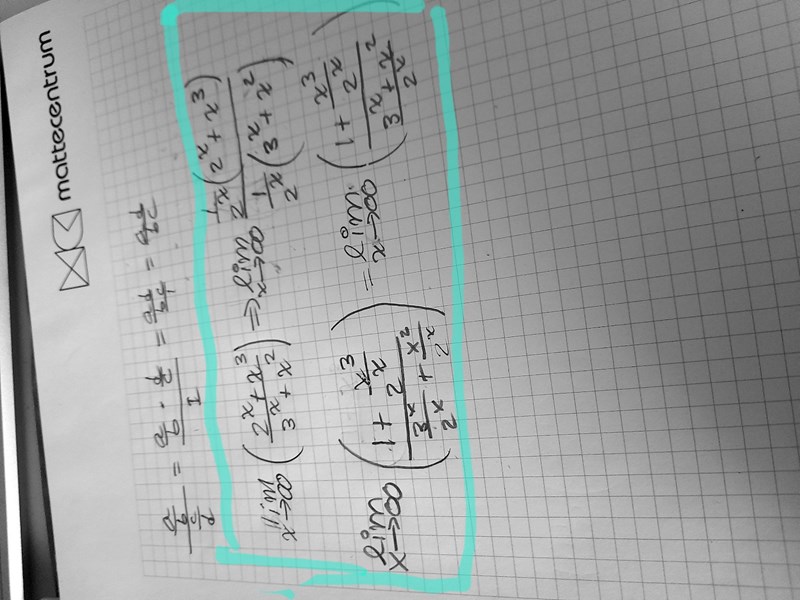 mattecentrum
(a/b)/(c/d) = (a/b · d/c)/1 = ad/bc = ad/bc
lim x→∞ ((2^x + x^3)/(3^x + x^2)) ⇒ lim x→∞ (1/2^x (2^x + x^3))/(1/2^x (3^x + x^2))
lim x→∞ ((1 + x^3/2^x)/(3^x/2^x + x^2/2^x)) = lim x→∞ ((1 + x^3/2^x)/((3^x + x^2)/2^x))